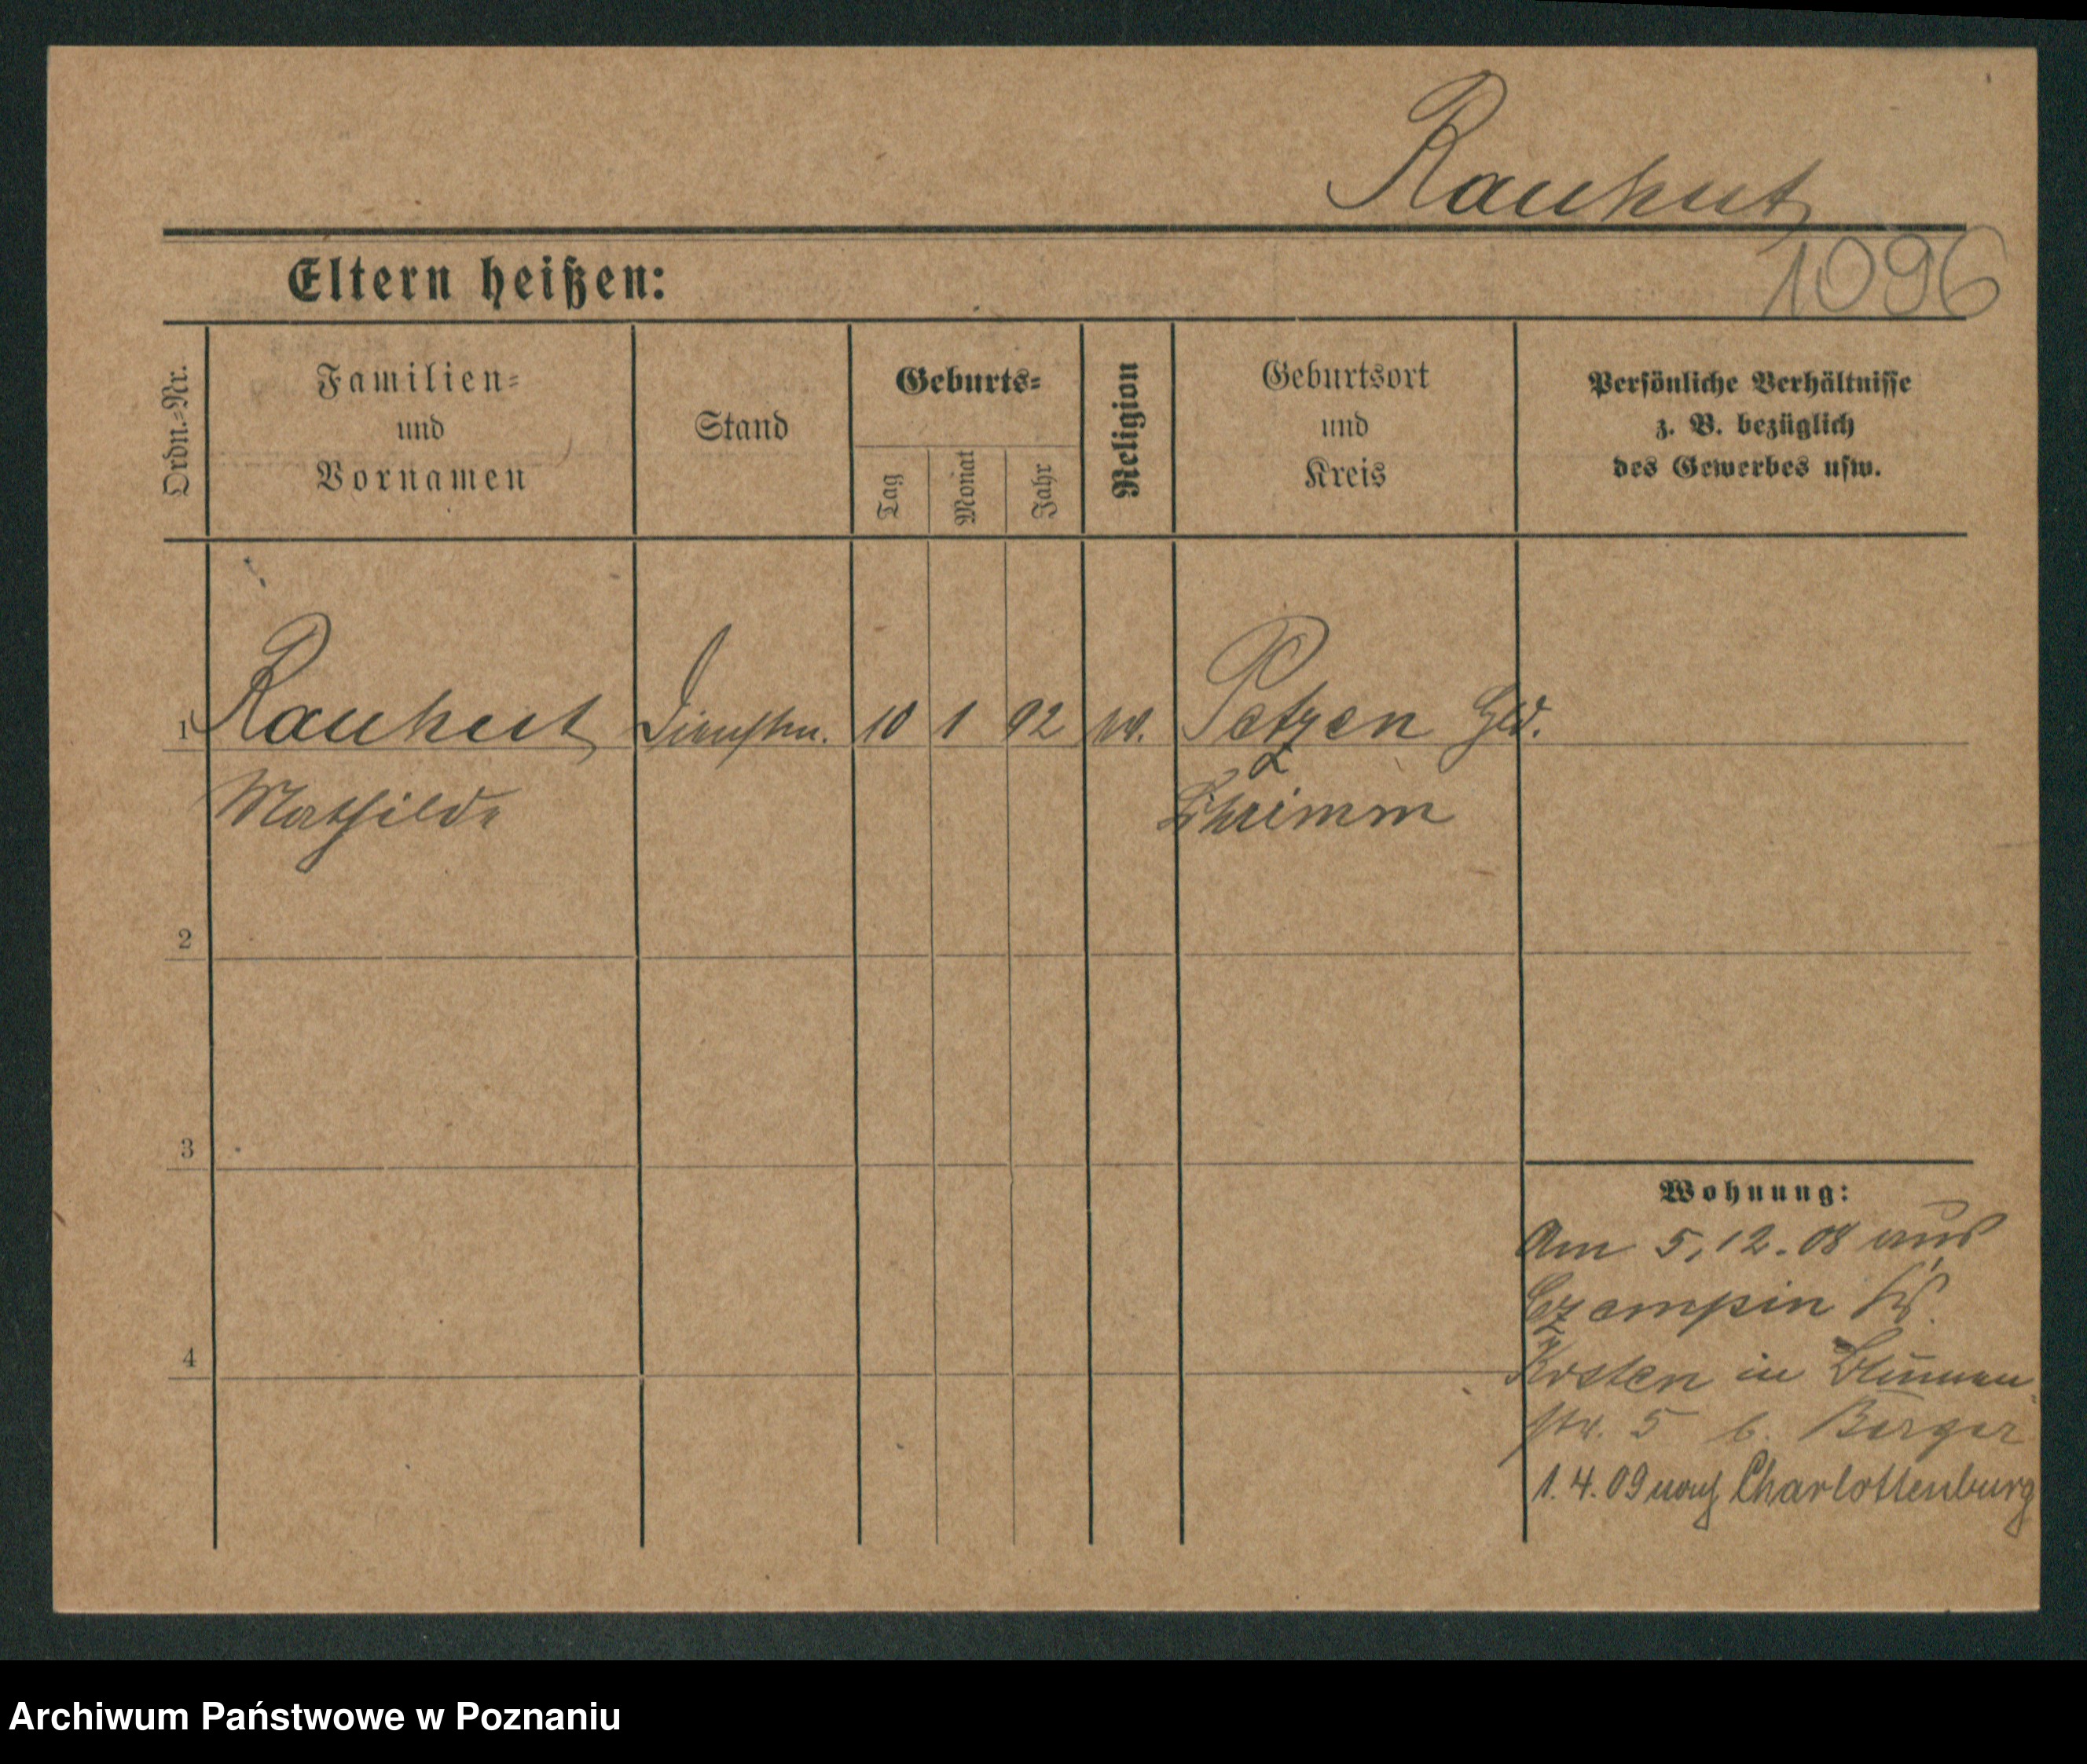 Rauhut
1096
Eltern heißen:
Ordn.-Nr.
Familien-
und
Vornamen
Stand
Geburts-
Tag
Monat
Jahr
Religion
Geburtsort
und
Kreis
Persönliche Verhältnisse
z. B. bezüglich
des Gewerbes usw.
1 Rauhut Dienstm. 10 1 92 Petzen Hld.
Mathilde Schrimm
2
3
4
Wohnung:
Am 5.12.08 aus
Czempin Kr.
Kosten in Blumen-
str. 5 b. Berger
1.4.09 nach Charlottenburg
Archiwum Państwowe w Poznaniu